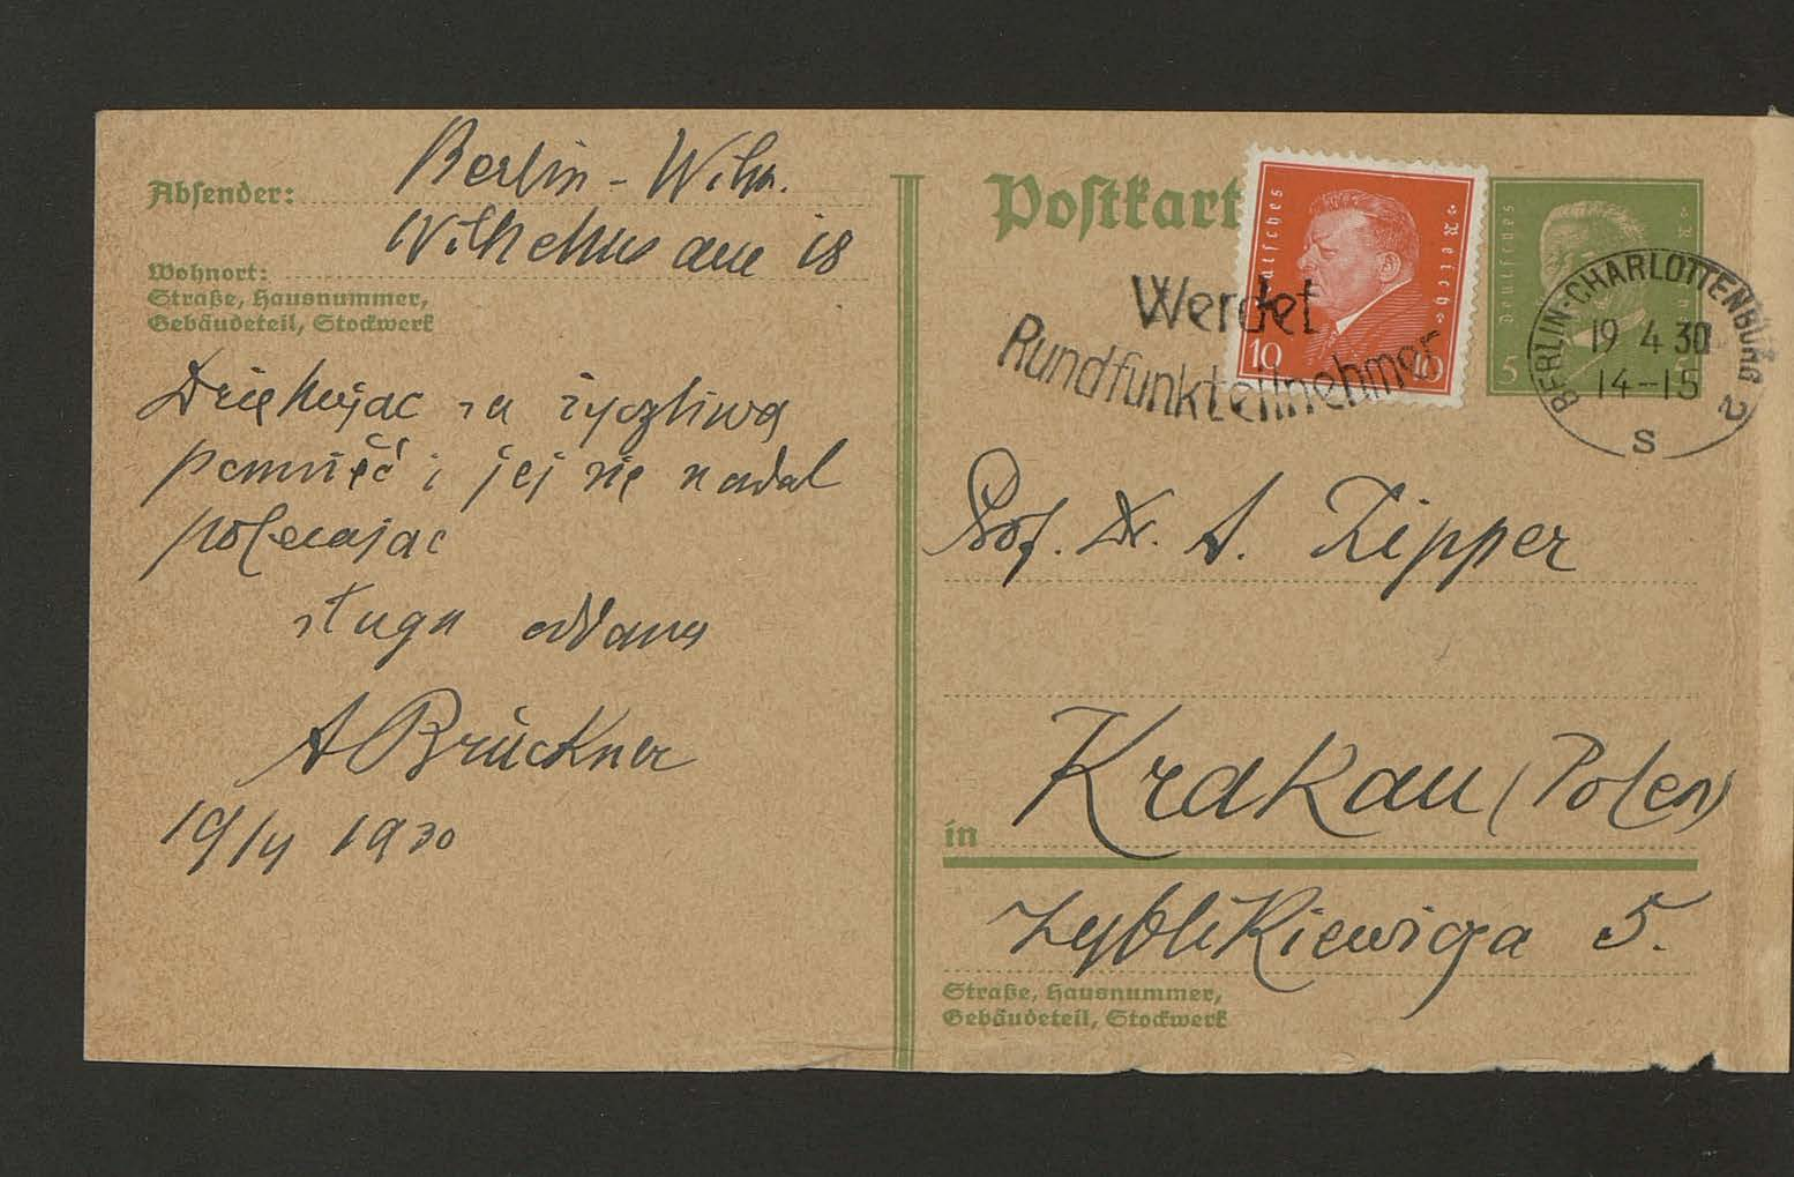 Absender:
Berlin - Wilm.
Wilhelmsaue 18
Wohnort:
Straße, Hausnummer,
Gebäudeteil, Stockwerk
Dziękując za życzliwą
pamięć i jej się nadal
polecając
sługa oddany
A Brückner
19/IV 1930
Postkart
Deutsches Reich
10 10
Deutsches
5
Werdet
Rundfunkteilnehmer
BERLIN-CHARLOTTENBURG 2
19 4 30
14-15
S
Prof. Dr. A. Zipper
in Krakau (Polen)
Zyblikiewicza 5.
Straße, Hausnummer,
Gebäudeteil, Stockwerk